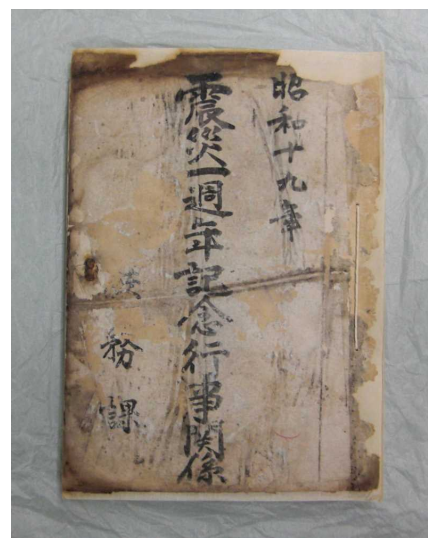 昭和十九年
震災一週年記念行事関係
務課